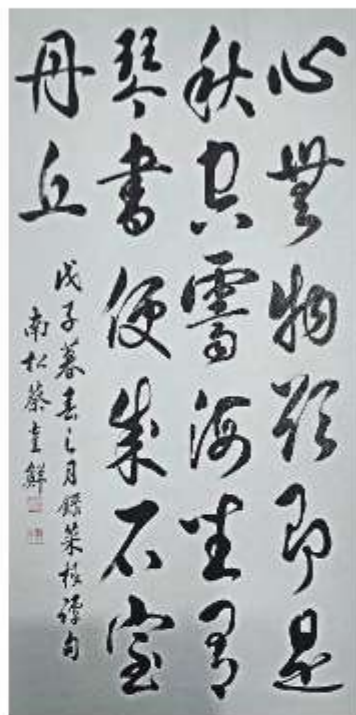 心無物欲即是
秋空霽海坐有
琴書便成石室
丹丘
戊子暮春之月錄菜根譚句
南松蔡鮮